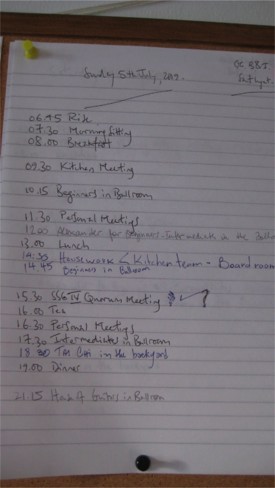 Sunday 5th July, 2009.
06.45 Rise
07.30 Morning Sitting
08.00 Breakfast
09.30 Kitchen Meeting
10.15 Beginners in Ballroom
11.30 Personal Meetings
12.00 Alexander for Beginners. Intermediate in the
13.00 Lunch
Housework < Kitchen team - Board room
14.45 Beginners in Ballroom
15.30 IV Quorum Meeting
16.00 Tea
16.30 Personal Meetings
17.30 Intermediates in Ballroom
18.30 Tai Chi in the backyard
19.00 Dinner
21.15 in Ballroom